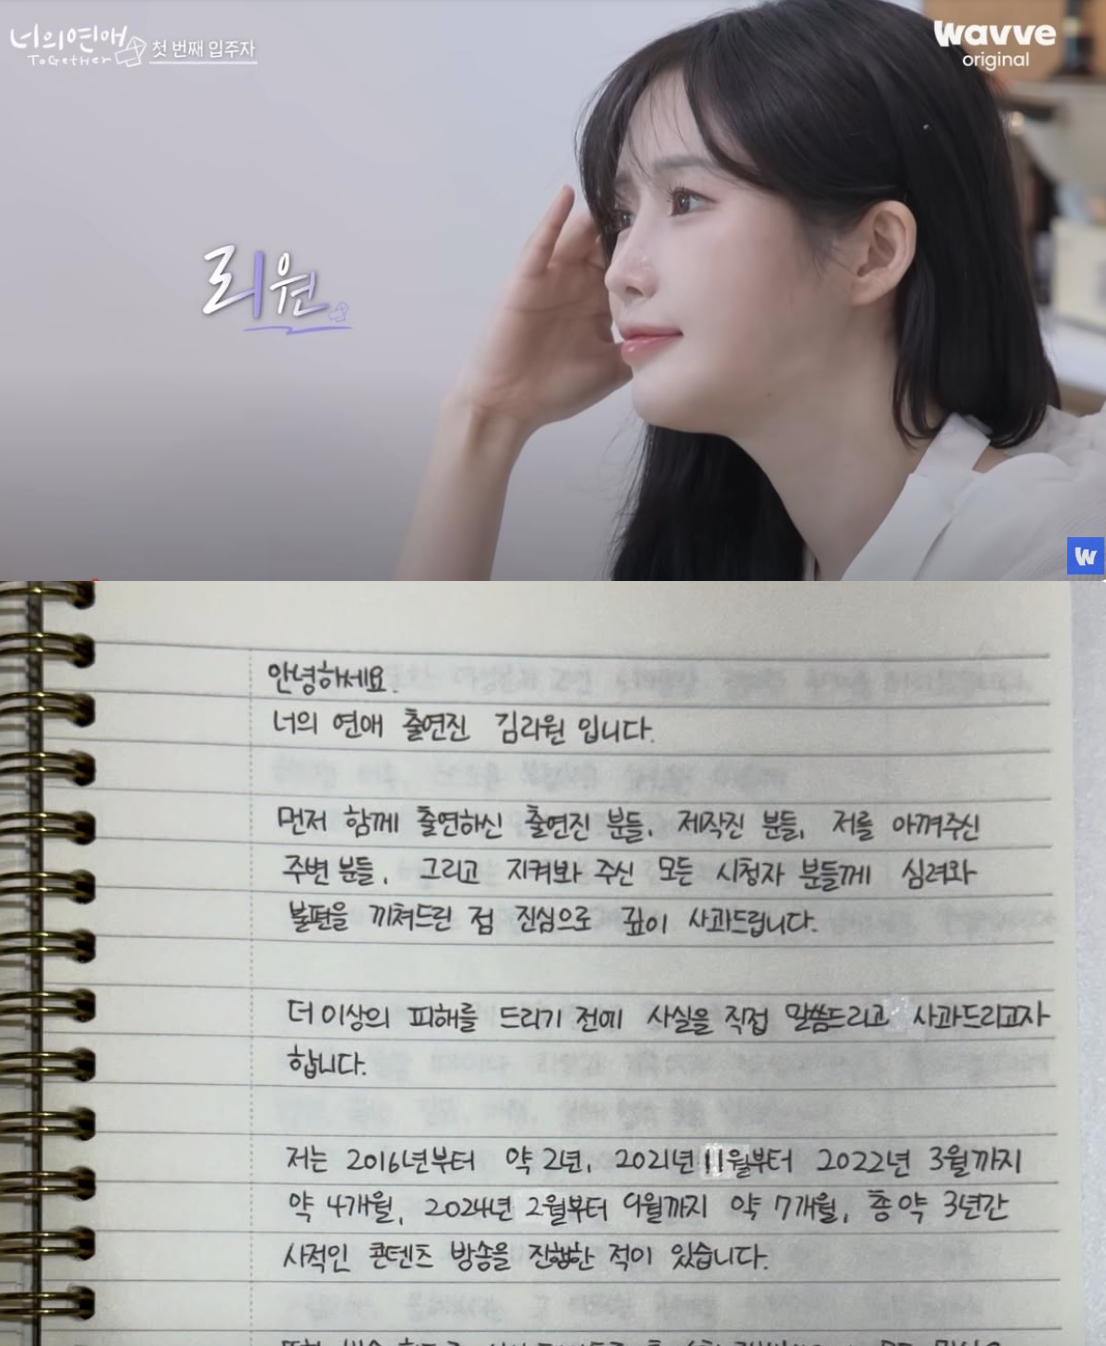 너의연애
ToGether
첫 번째 입주자
wavve
original
리원
W
안녕하세요.
너의 연애 출연진 김리원 입니다.
먼저 함께 출연하신 출연진 분들, 제작진 분들, 저를 아껴주신
주변 분들, 그리고 지켜봐 주신 모든 시청자 분들께 심려와
불편을 끼쳐드린 점 진심으로 깊이 사과드립니다.
더 이상의 피해를 드리기 전에 사실을 직접 말씀드리고 사과드리고자
합니다.
저는 2016년부터 약 2년, 2021년 11월부터 2022년 3월까지
약 4개월, 2024년 2월부터 9월까지 약 7개월, 총 약 3년간
사적인 콘텐츠 방송을 진행한 적이 있습니다.